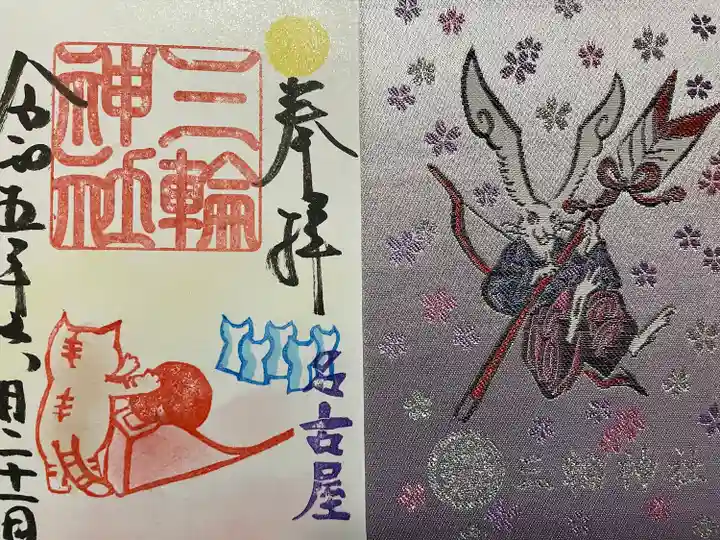 奉拝
三輪
神社
名古屋
令和五年六月二十一日
三輪神社